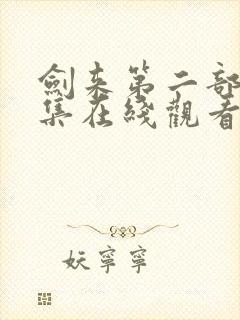 劍来第二部
集在綫觀看
妖寧寧